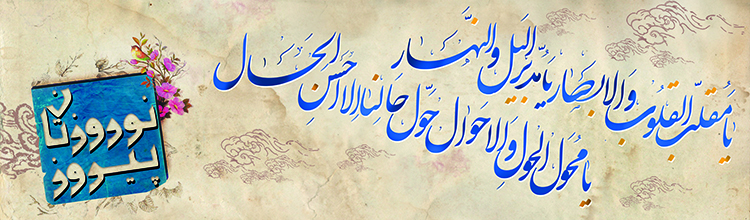 یا مقلب القلوب والابصار یا مدبر اللیل والنهار
یا محول الحول والاحوال حول حالنا الا احسن الحال
نوروزتان
پیروز